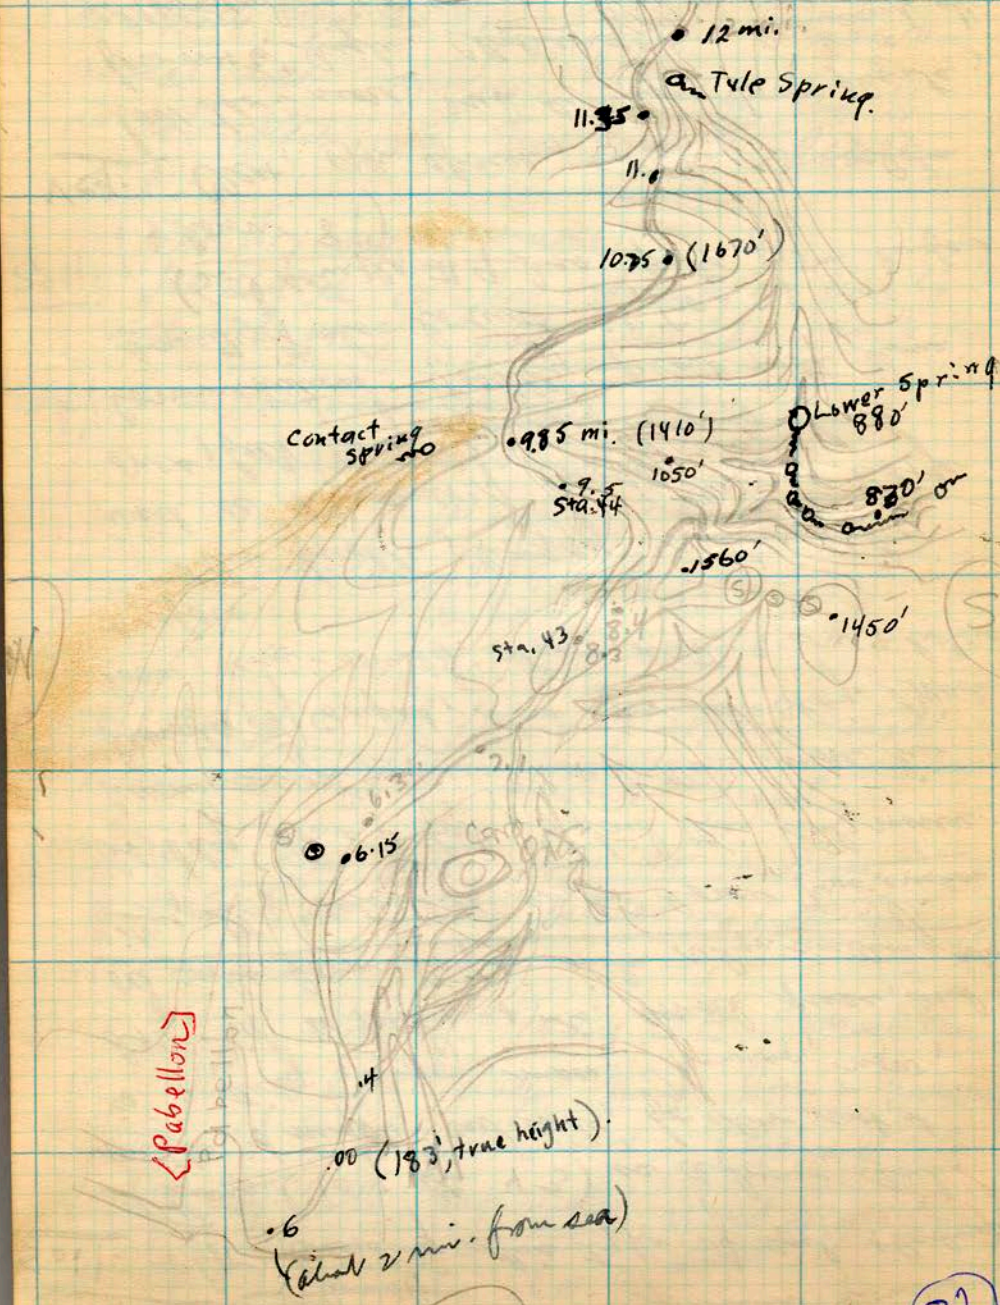 12 mi.
Tule Spring.
11.35
11.
10.75 (1670')
Lower Spring
880'
Contact
spring
9.85 mi. (1410')
1050'
9.5
Sta. 44
870'
1560'
S S S
S
1450'
8.4
sta. 43
8.3
7.1
6.3
S
6.15
[Pabellon]
.4
.00 (183', true height).
.6
(about 2 mi. from sea)